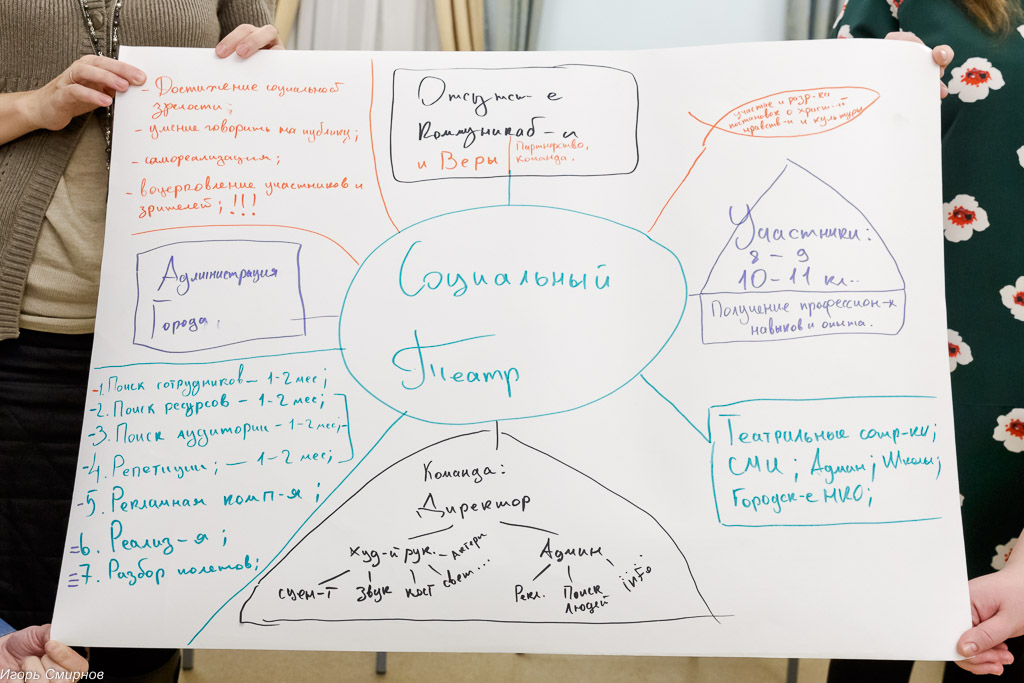 - Достижение социальной
зрелости;
- умение говорить на публику;
- самореализация;
- воцерковление участников и
зрителей; !!!
Отсутст-е
Коммуникаб-и
и Веры
Партнерство,
Команда.
участие и разр-ки
постановок о христ-й
нравств-и и культуры
Администрация
Города.
Социальный
Театр
Участники:
8 – 9
10 – 11 кл..
Получение профессион-х
навыков и опыта.
- 1. Поиск сотрудников – 1-2 мес;
- 2. Поиск ресурсов – 1-2 мес;
- 3. Поиск аудитории – 1-2 мес;
- 4. Репетиции; – 1-2 мес;
- 5. Рекламная комп-я;
6. Реализ-я;
7. Разбор полетов;
Команда:
Директор
худ-й рук. – Актеры
Админ
сцен-т звук кост свет...
Рекл. Поиск людей info
Театральные сотр-ки;
СМИ; Админ; Школы;
Городск-е НКО;
Игорь Смирнов